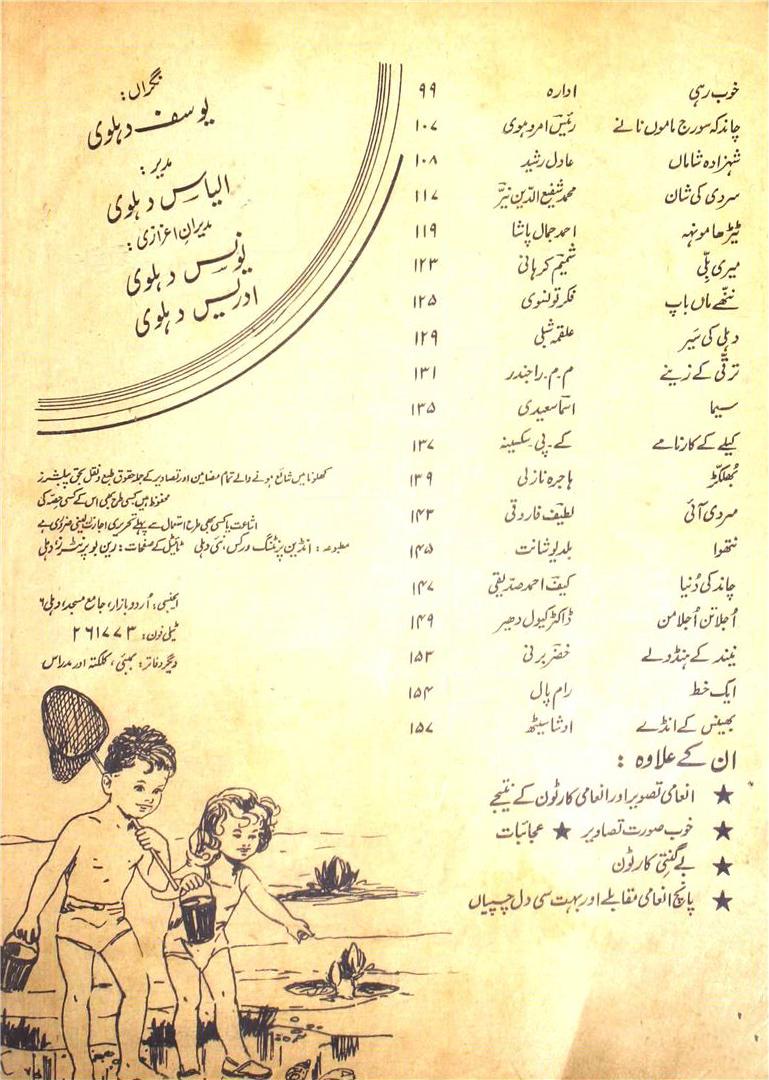 خوب رہی ادارہ ۹۹
چاند کہ سورج ماموں نانے رئیس امروہوی ۱۰۷
شہزادہ شاماں عادل رشید ۱۰۸
سردی کی شان محمد شفیع الدین نیّر ۱۱۷
ٹیڑھا مونہہ احمد جمال پاشا ۱۱۹
میری بلّی شمیم کرہانی ۱۲۳
ننّھے ماں باپ فکر تونسوی ۱۲۵
دہلی کی سَیر علقمہ شبلی ۱۲۹
ترقّی کے زینے م۔م۔راجندر ۱۳۱
سیما اسما سعیدی ۱۳۵
کیلے کے کارنامے کے۔پی۔سکسینہ ۱۳۷
بُھلکڑ ہاجرہ نازلی ۱۳۹
سردی آئی لطیف فاروقی ۱۴۳
نتھوا بلدیو شانت ۱۴۵
چاند کی دُنیا کیف احمد صدّیقی ۱۴۷
اُجلا تن اُجلا من ڈاکٹر کیول دھیر ۱۴۹
نیند کے ہنڈولے خضر برنی ۱۵۳
ایک خط رام پال ۱۵۴
بھینس کے انڈے اوشا سیٹھ ۱۵۷
ان کے علاوہ :
★ انعامی تصویر اور انعامی کارٹون کے نتیجے
★ خوب صورت تصاویر ★ عجائبات
★ بے گنتی کارٹون
★ پانچ انعامی مقابلے اور بہت سی دل چسپیاں
نگراں:
یوسف دہلوی
مدیر:
الیاس دہلوی
مدیران اعزازی:
یونس دہلوی
ادریس دہلوی
کھلونا میں شائع ہونے والے تمام مضامین اور تصاویر کے جملہ حقوق طبع و نقل بحق پبلشرز
محفوظ ہیں کسی طرح بھی اس کے کسی حصّہ کی
اشاعت یا کسی بھی طرح استعمال سے پہلے تحریری اجازت لینی ضروری ہے
مطبوعہ: انڈین پرنٹنگ ورکس، نئی دہلی ٹائیٹل کے صفحات: رین بو پرنٹرز دہلی
ایجنسی: اُردو بازار، جامع مسجد، دہلی ۶
ٹیلی فون: ۲۶۱۷۷۳
دیگر دفاتر: بمبئی، کلکتہ اور مدراس